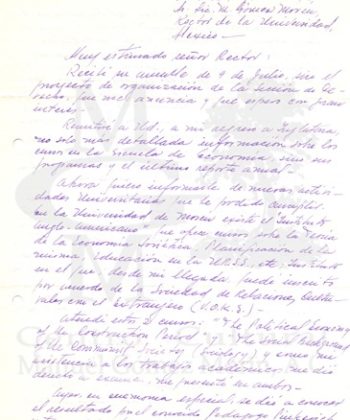 Sr. Lic. M. Gómez Morín,
Rector de la Universidad,
México —
Muy estimado señor Rector:
Recibí su amable de 9 de Julio, sin el
proyecto de organización de la Sección de De-
recho, que me anuncia y que espero con gran
interés.
Remitiré a Ud., a mi regreso a Inglaterra,
no solo más detallada información sobre los
cursos en la Escuela de Economía, sino sus
programas y el último reporte anual.—
Ahora quiero informarle de nuevas activi-
dades Universitarias que he podido cumplir.
en la Universidad de Moscú existe el Instituto
Anglo-Americano que ofrece cursos sobre la Teoría
de la Economía Soviética, Planificación de la
misma, Educación en la U.R.S.S., etc.; Instituto
en el que, desde mi llegada, quedé inscrito
por acuerdo de la Sociedad de Relaciones Cultu-
rales con el extranjero (V.O.K.S.)—
Atendí estos 2 cursos: "The Political Economy
of the Construction Period" "The Social Background
of the Communist Society (Sociology)" y como mi
asistencia a los trabajos académicos me dió
derecho a examen, me presenté en ambos.—
Ayer, en ceremonia especial, se dió a conocer
el resultado por el conocido Pedagogo